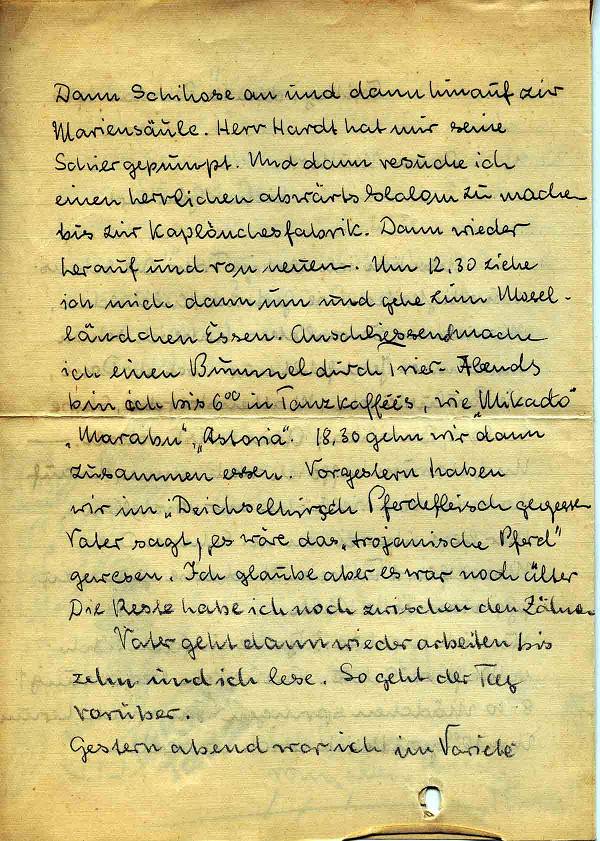 Dann Schihose an und dann hinauf zur
Mariensäule. Herr Hardt hat mir seine
Schier gepumpt. Und dann versuche ich
einen herrlichen abwärts Slalom zu machen
bis zur Kaplönchesfabrik. Dann wieder
herauf und von neuen. Um 12,30 ziehe
ich mich dann um und gehe zum Mosel-
ländchen Essen. Anschliessend mache
ich einen Bummel durch Trier. Abends
bin ich bis 6⁰⁰ in Tanzkaffées, wie „Mikado"
„Marabu", „Astoria". 18,30 gehn wir dann
zusammen essen. Vorgestern haben
wir im „Deichselhirsch Pferdefleisch gegessen
Vater sagt, es wäre das „trojanische Pferd"
gewesen. Ich glaube aber es war noch älter
Die Reste habe ich noch zwischen den Zähnen
Vater geht dann wieder arbeiten bis
zehn und ich lese. So geht der Tag
vorüber.
Gestern abend war ich im Varieté